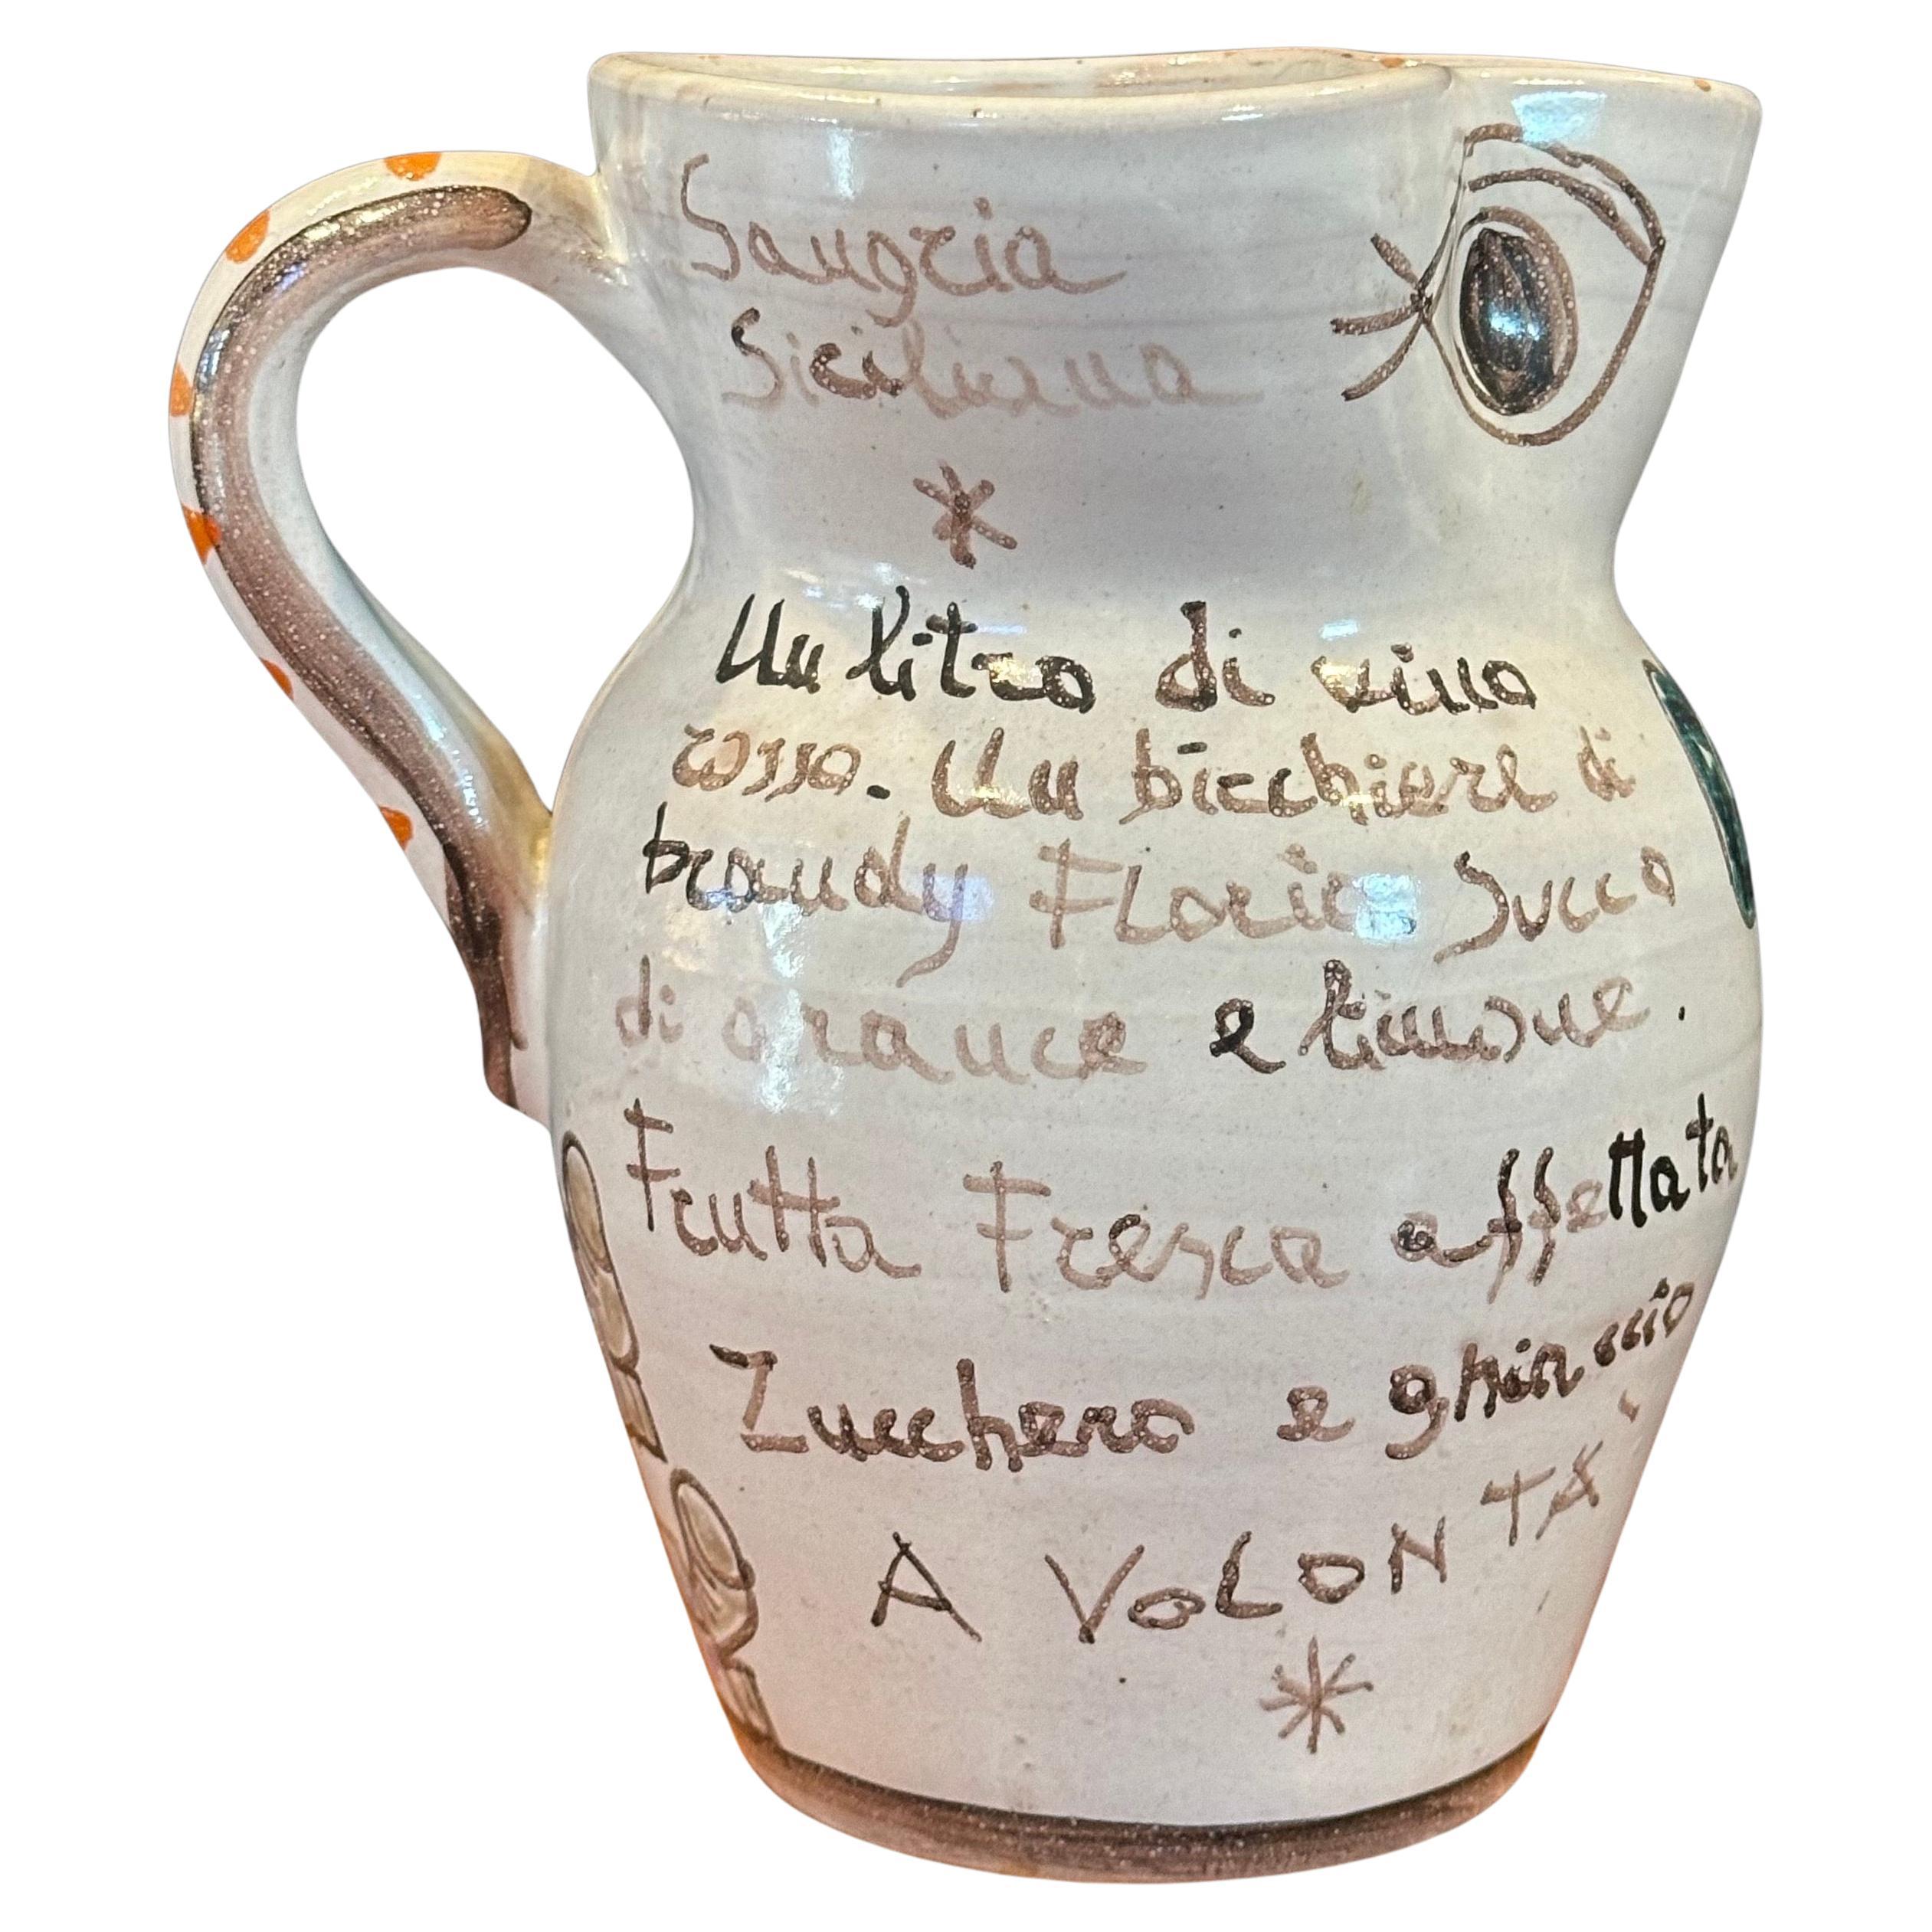 Sangria
Siciliana
Un litro di vino
rosso. Un bicchiere di
brandy Florio Succo
di arance e limone.
Frutta Fresca affettata
Zucchero e ghiaccio
A VOLONTÁ